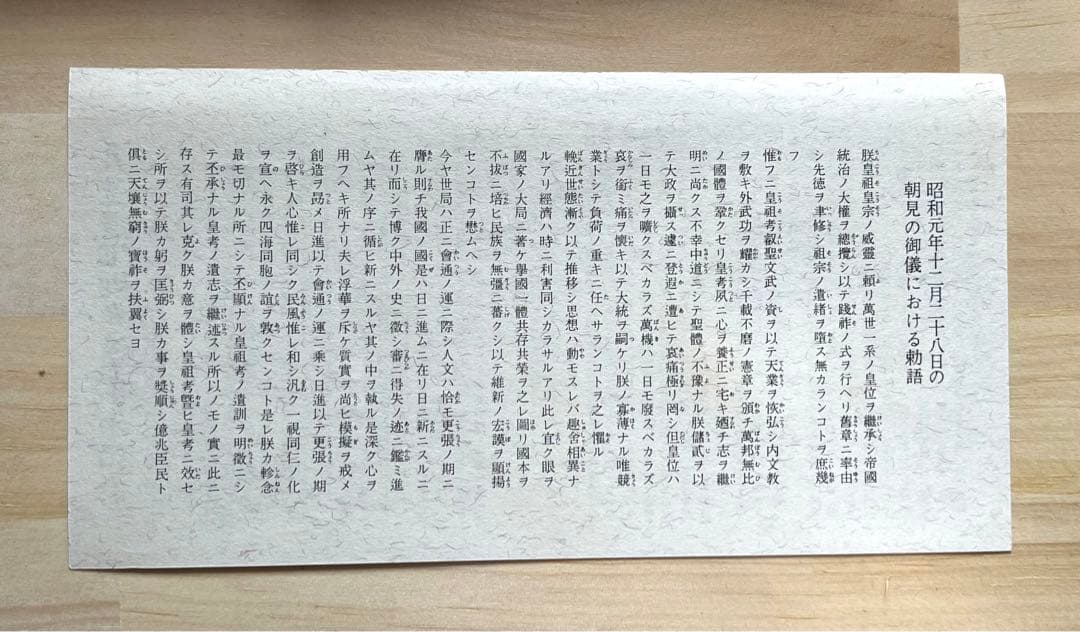 昭和元年十二月二十八日の
朝見の御儀における勅語
朕皇祖皇宗ノ威靈ニ頼リ萬世一系ノ皇位ヲ繼承シ帝國
統治ノ大權ヲ總攬シ以テ踐祚ノ式ヲ行ヘリ舊章ニ率由
シ先德ヲ聿修シ祖宗ノ遺緒ヲ墜ス無カランコトヲ庶幾
フ
惟フニ皇祖考叡聖文武ノ資ヲ以テ天業ヲ恢弘シ内文教
ヲ敷キ外武功ヲ耀カシ千載不磨ノ憲章ヲ頒チ萬邦無比
ノ國體ヲ鞏クセリ皇考夙ニ心ヲ養正ニ宅キ廼チ志ヲ繼
明ニ尚クス不幸中道ニシテ聖體ノ不豫ナル朕儲貳ヲ以
テ大政ヲ攝ス遽ニ登遐ニ遭ヒテ哀痛極リ罔シ但皇位ハ
一日モ之ヲ曠クスベカラズ萬機ハ一日モ廢スベカラズ
哀ヲ銜ミ痛ヲ懷キ以テ大統ヲ嗣ケリ朕ノ寡薄ナル唯兢
業トシテ負荷ノ重キニ任ヘサランコトヲ之レ懼ル
輓近世態漸ク以テ推移シ思想ハ動モスレバ趣舍相異ナ
ルアリ經濟ハ時ニ利害同シカラサルアリ此レ宜ク眼ヲ
國家ノ大局ニ著ケ擧國一體共存共榮ヲ之レ圖リ國本ヲ
不拔ニ培ヒ民族ヲ無疆ニ蕃クシ以テ維新ノ宏謨ヲ顯揚
センコトヲ懋ムヘシ
今ヤ世局ハ正ニ會通ノ運ニ際シ人文ハ恰モ更張ノ期ニ
膺ル則チ我國ノ國是ハ日ニ進ムニ在リ日ニ新ニスルニ
在リ而シテ博ク中外ノ史ニ徴シ審ニ得失ノ迹ニ鑑ミ進
ムヤ其ノ序ニ循ヒ新ニスルヤ其ノ中ヲ執ル是深ク心ヲ
用フヘキ所ナリ夫レ浮華ヲ斥ケ質實ヲ尚ヒ模擬ヲ戒メ
創造ヲ勗メ日進以テ會通ノ運ニ乘シ日進以テ更張ノ期
ヲ啓キ人心惟レ同シク民風惟レ和シ汎ク一視同仁ノ化
ヲ宣ヘ永ク四海同胞ノ誼ヲ敦クセンコト是レ朕カ軫念
最モ切ナル所ニシテ丕顯ナル皇祖考ノ遺訓ヲ明徴ニシ
テ丕承ナル皇考ノ遺志ヲ繼述スル所以ノモノ實ニ此ニ
存ス有司其レ克ク朕カ意ヲ體シ皇祖考曁ヒ皇考ニ效セ
シ所ヲ以テ朕カ躬ヲ匡弼シ朕カ事ヲ奬順シ億兆臣民ト
俱ニ天壤無窮ノ寶祚ヲ扶翼セヨ